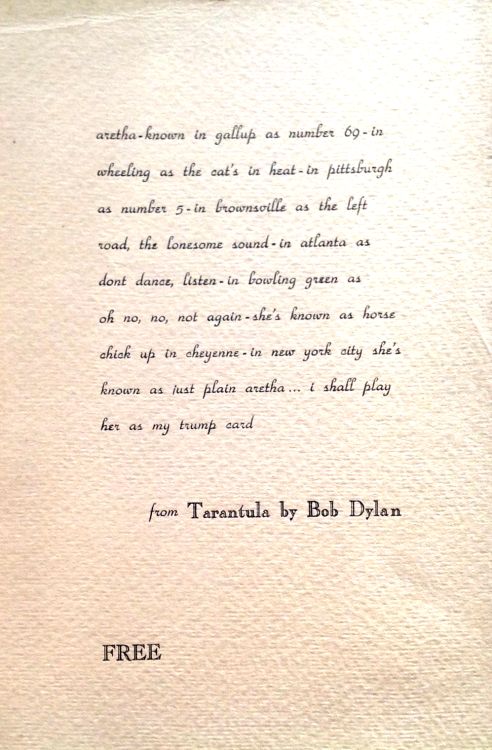 aretha-known in gallup as number 69-in
wheeling as the cat's in heat-in pittsburgh
as number 5-in brownsville as the left
road, the lonesome sound-in atlanta as
dont dance, listen-in bowling green as
oh no, no, not again-she's known as horse
chick up in cheyenne-in new york city she's
known as just plain aretha... i shall play
her as my trump card
from Tarantula by Bob Dylan
FREE